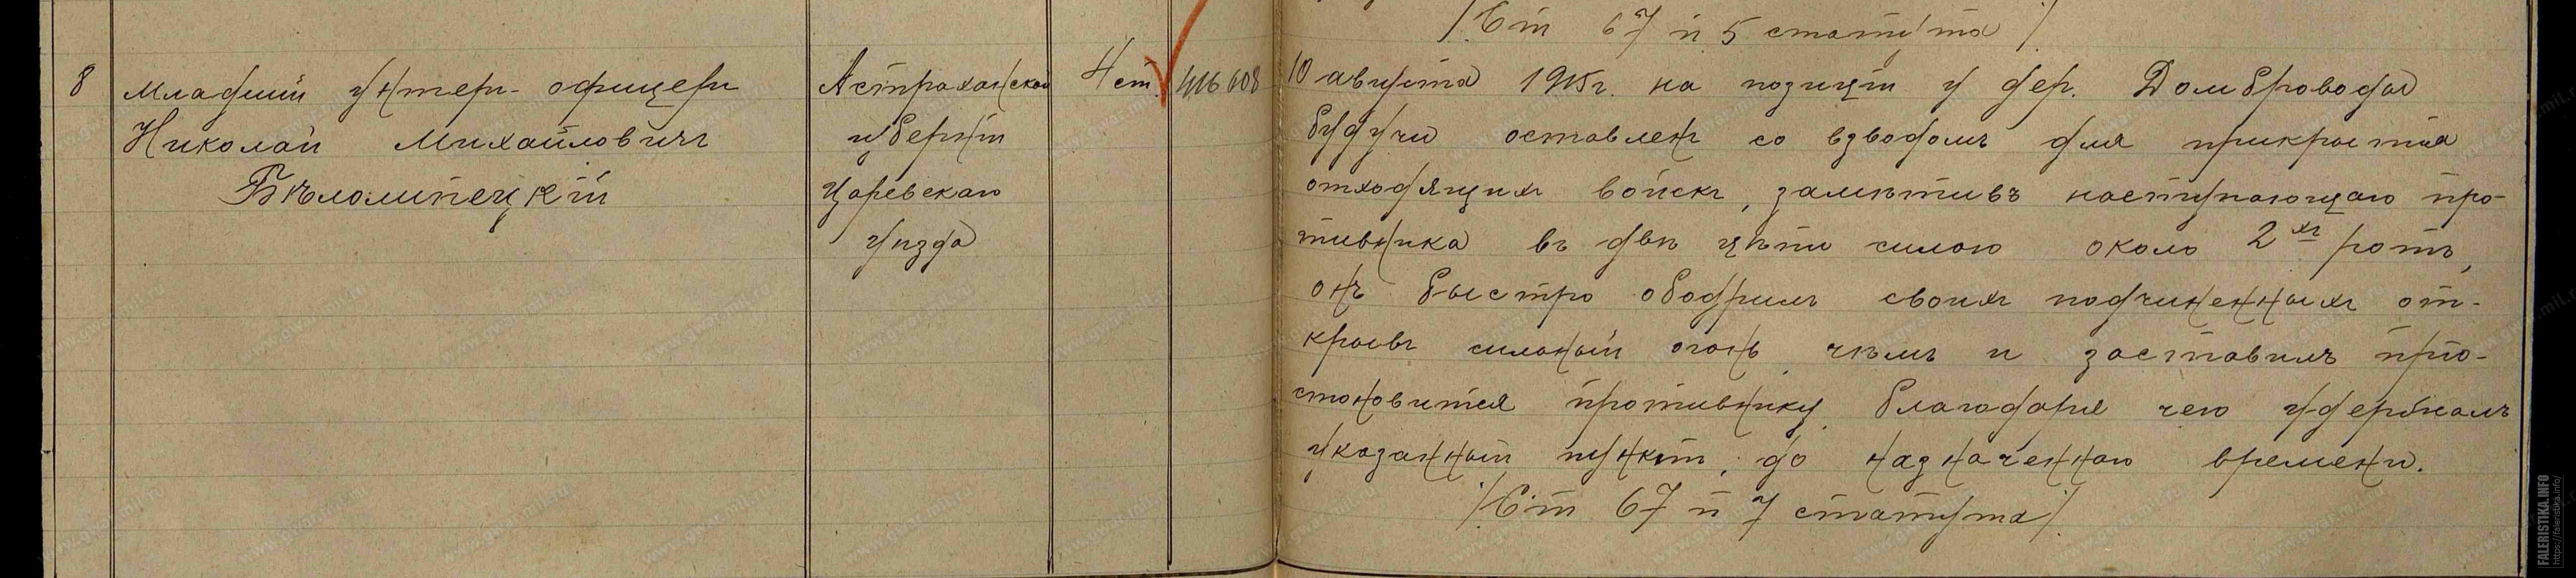 /Ст 67 п 5 статута/
8
Младший унтеръ-офицеръ
Николай Михайловичъ
Бѣлолипецкій
Астраханской
губерніи
Царевскаго
уѣзда
4 ст.
416 608
10 августа 1915 г. на позиціи у дер. Домброводы
будучи оставленъ со взводомъ для прикрытія
отходящихъ войскъ, замѣтивъ наступающаго про-
тивника въ двѣ цѣпи силою около 2хъ ротъ,
онъ быстро ободрилъ своихъ подчиненныхъ от-
крывъ сильный огонь, чѣмъ и заставилъ прі-
становится противнику, благодаря чего удержалъ
указанный пунктъ, до назначеннаго времени.
/Ст 67 п 7 статута/
www.gwar.mil.ru
FALERISTIKA.INFO
https://faleristika.info/